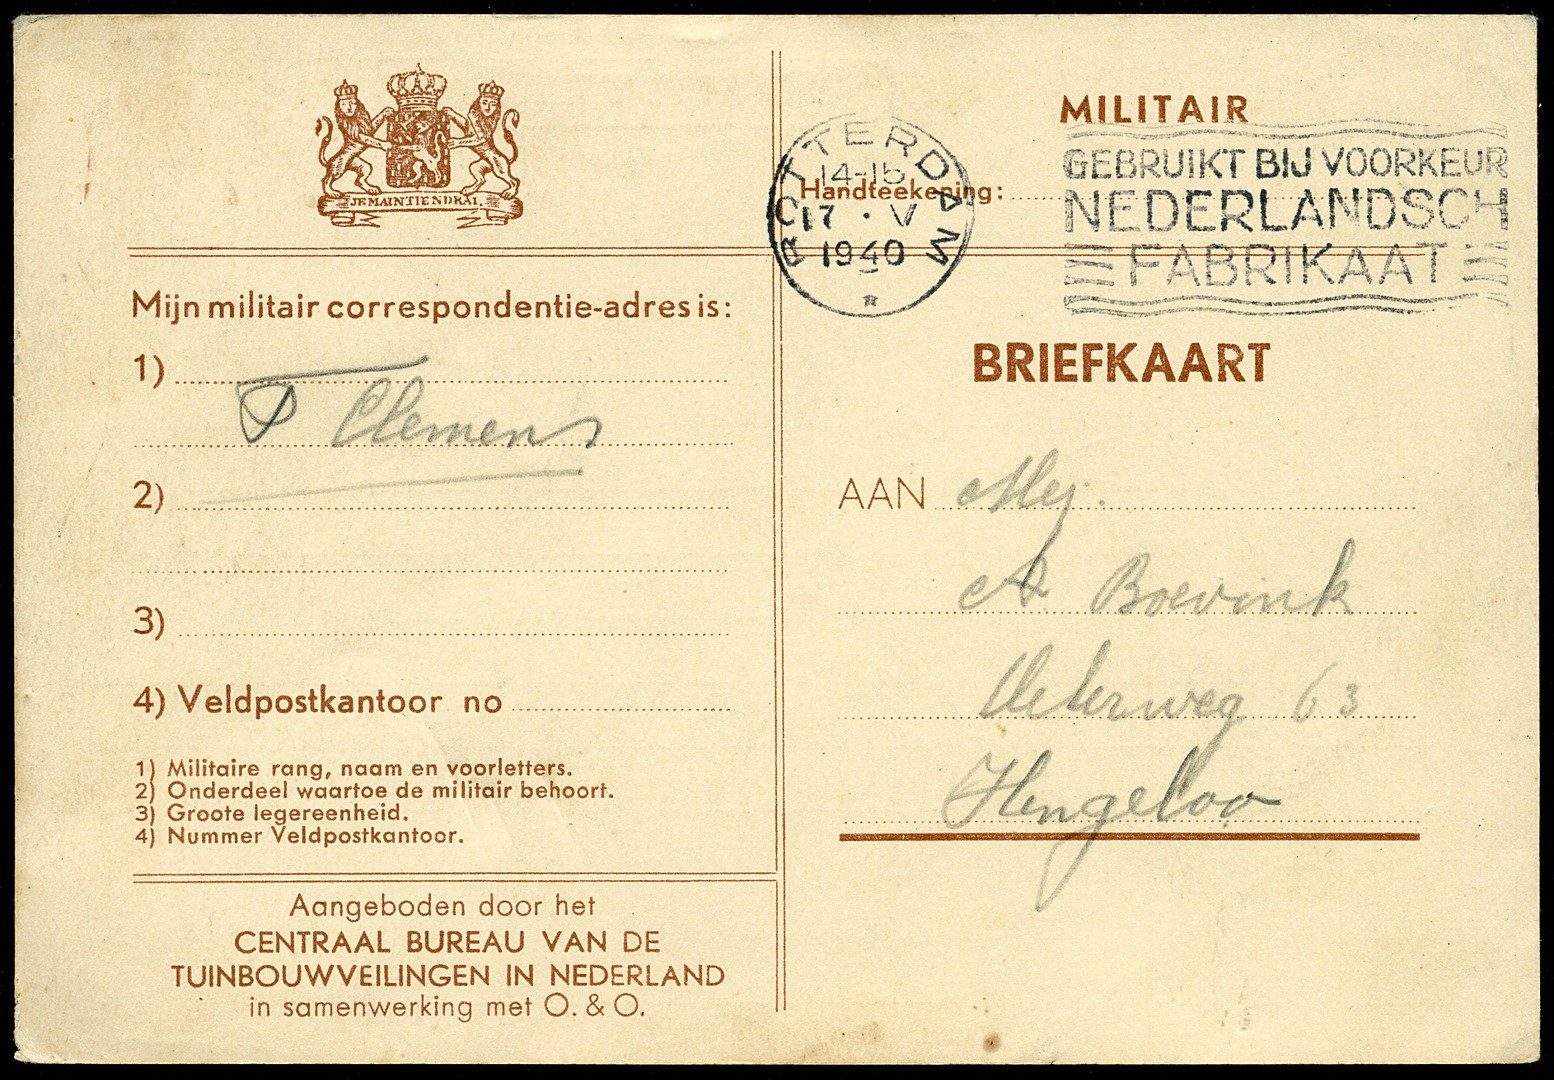 JE MAINTIENDRAI.
Mijn militair correspondentie-adres is:
1)
Clemens
2)
3)
4) Veldpostkantoor no
1) Militaire rang, naam en voorletters.
2) Onderdeel waartoe de militair behoort.
3) Groote legereenheid.
4) Nummer Veldpostkantoor.
Aangeboden door het
CENTRAAL BUREAU VAN DE
TUINBOUWVEILINGEN IN NEDERLAND
in samenwerking met O. & O.
MILITAIR
Handteekening:
ROTTERDAM
14-15
17 · V
1940
GEBRUIKT BIJ VOORKEUR
NEDERLANDSCH
FABRIKAAT
BRIEFKAART
AAN Mej.
A Boevink
63
Hengeloo